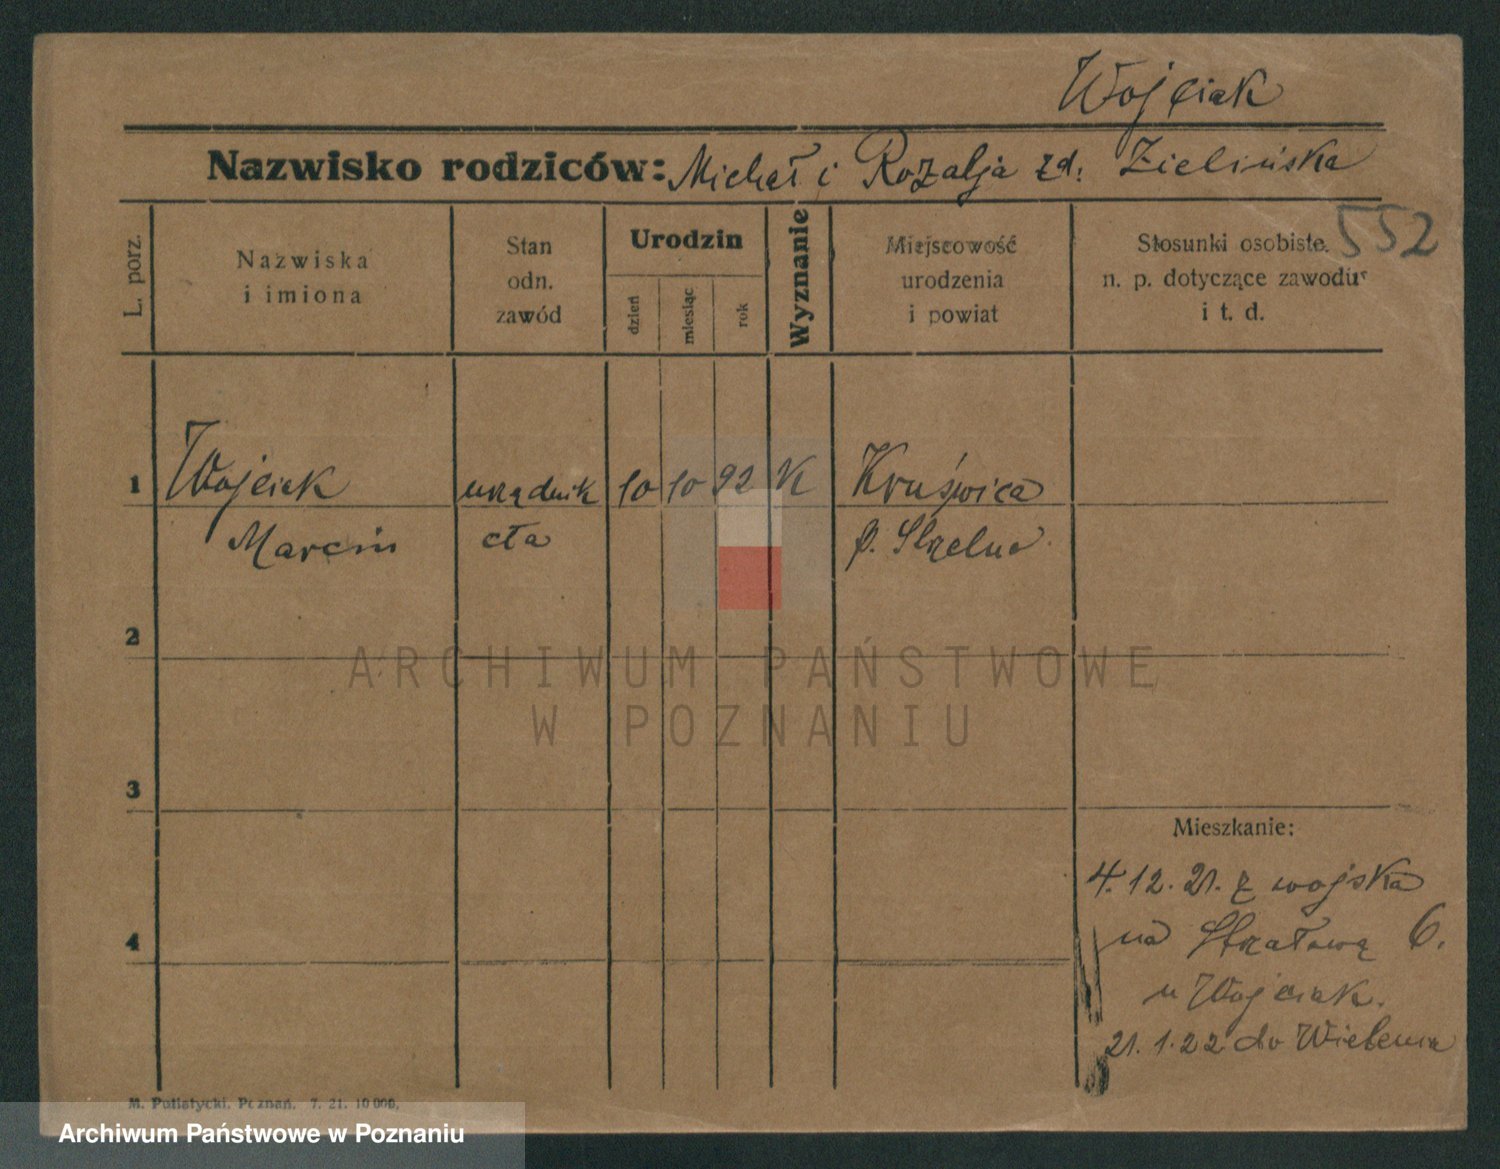 Wojciak
Nazwisko rodziców: Michał i Rozalja zd. Zielińska
552
L. porz.
Nazwiska
i imiona
Stan
odn.
zawód
Urodzin
dzień
miesiąc
rok
Wyznanie
Miejscowość
urodzenia
i powiat
Stosunki osobiste.
n. p. dotyczące zawodu
i t. d.
1 Wojciak urzędnik 10 10 92 K Kruświca
Marcin cła p. Strelno
2
ARCHIWUM PAŃSTWOWE
W POZNANIU
3
Mieszkanie:
4. 12. 21. z wojska
4 na Strzałową 6.
u Wojciak.
21. 1. 22 do
M. Putiatycki, Poznań. 7. 21. 10 000.
Archiwum Państwowe w Poznaniu